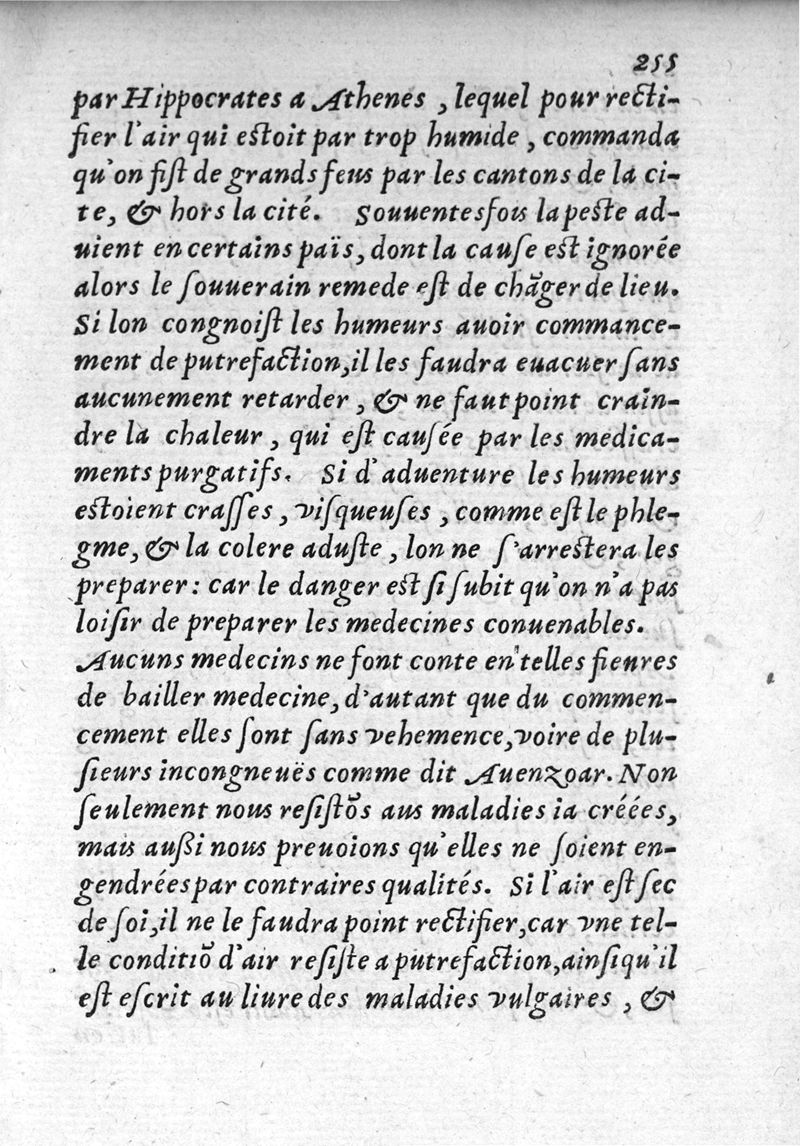 255
par Hippocrates a Athenes , lequel pour recti-
fier l'air qui estoit par trop humide , commanda
qu'on fiſt de grands feus par les cantons de la ci-
te, & hors la cité. Souuentesfois la peste ad-
uient en certains païs, dont la cauſe est ignorée
alors le ſouuerain remede eſt de chãger de lieu.
Si lon congnoiſt les humeurs auoir commance-
ment de putrefaction, il les faudra euacuer ſans
aucunement retarder , & ne faut point crain-
dre la chaleur , qui eſt cauſée par les medica-
ments purgatifs. Si d'aduenture les humeurs
estoient craſſes , viſqueuſes , comme eſt le phle-
gme, & la colere aduſte , lon ne ſ'arrestera les
preparer : car le danger est ſi ſubit qu'on n'a pas
loiſir de preparer les medecines conuenables.
Aucuns medecins ne font conte en telles fieures
de bailler medecine, d'autant que du commen-
cement elles ſont ſans vehemence, voire de plu-
ſieurs incongneuës comme dit Auenzoar. Non
ſeulement nous reſiſtõs aus maladies ia créées,
mais außi nous preuoions qu'elles ne ſoient en-
gendrées par contraires qualités. Si l'air eſt ſec
de ſoi, il ne le faudra point rectifier, car vne tel-
le conditiõ d'air reſiſte a putrefaction, ainſi qu'il
eſt eſcrit au liure des maladies vulgaires , &